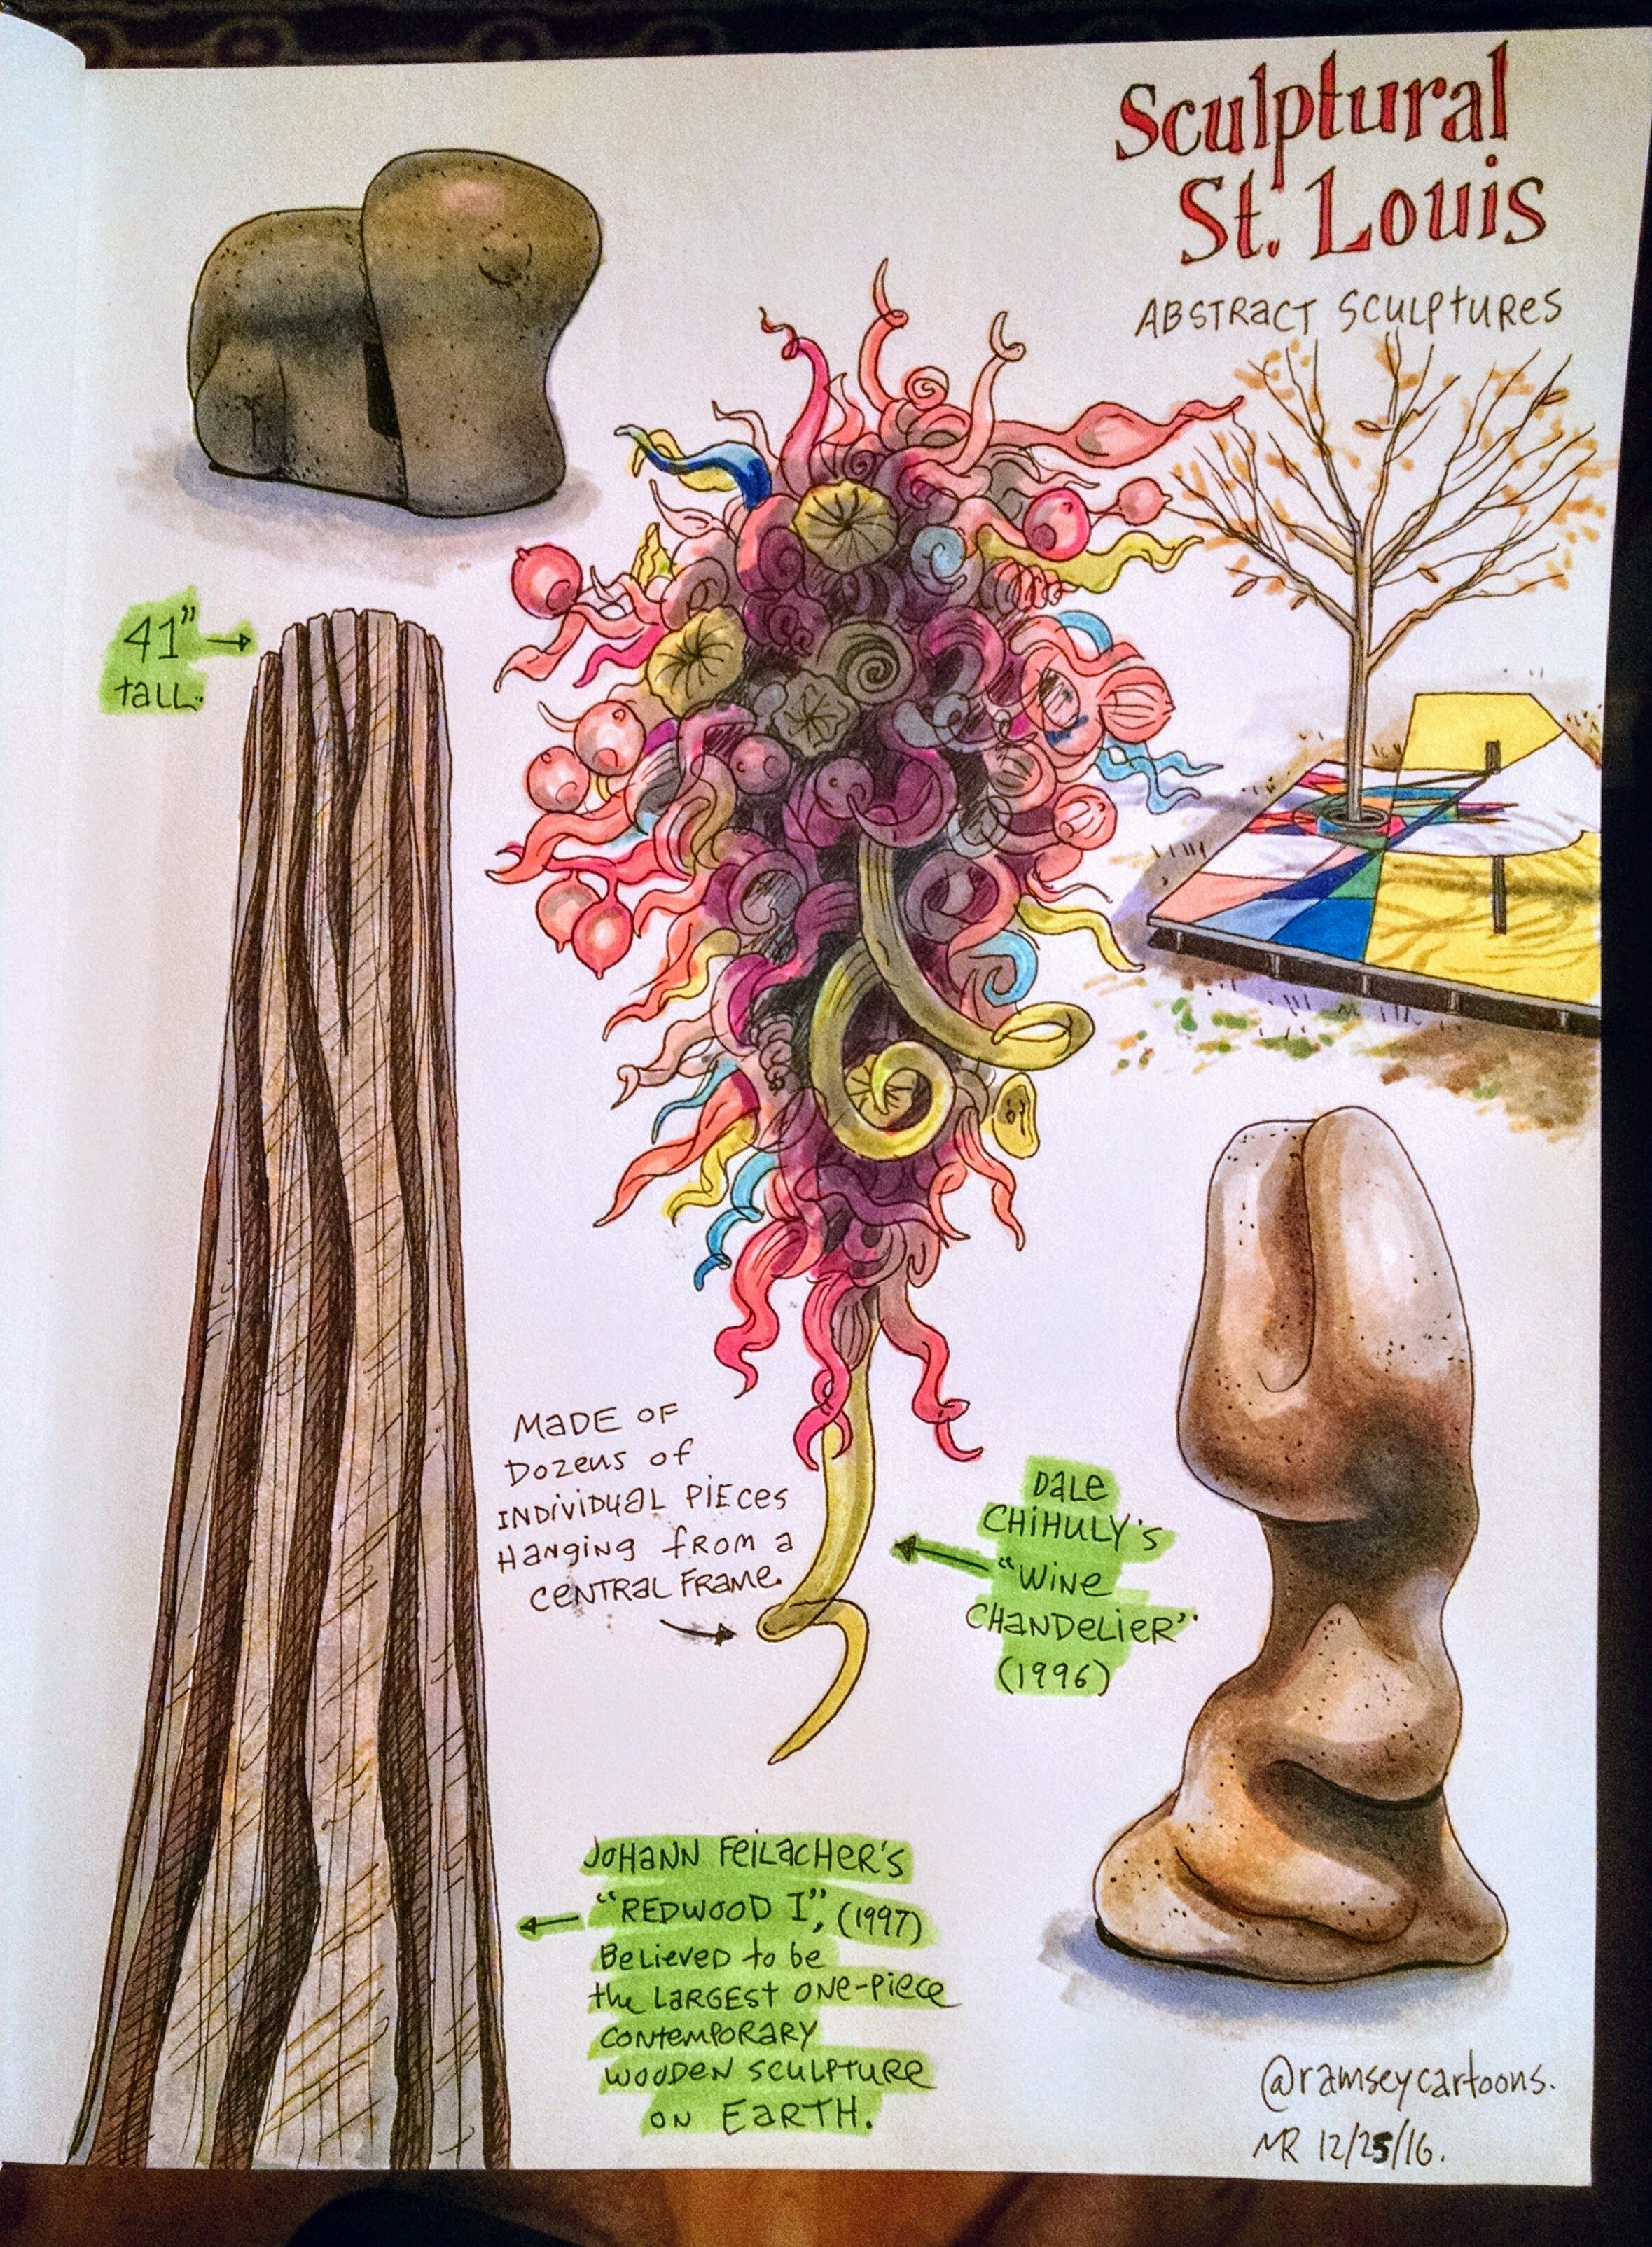 Sculptural
St. Louis
ABSTRACT SCULPTURES
41" →
tall.
MADE OF
DOZENS OF
INDIVIDUAL PIECES
HANGING FROM A
CENTRAL FRAME.
DALE
CHIHULY'S
"WINE
CHANDELIER"
(1996)
JOHANN FEILACHER'S
"REDWOOD I", (1997)
BELIEVED to be
the LARGEST ONE-PIECE
CONTEMPORARY
WOODEN SCULPTURE
ON EARTH.
@ramseycartoons.
MR 12/25/16.